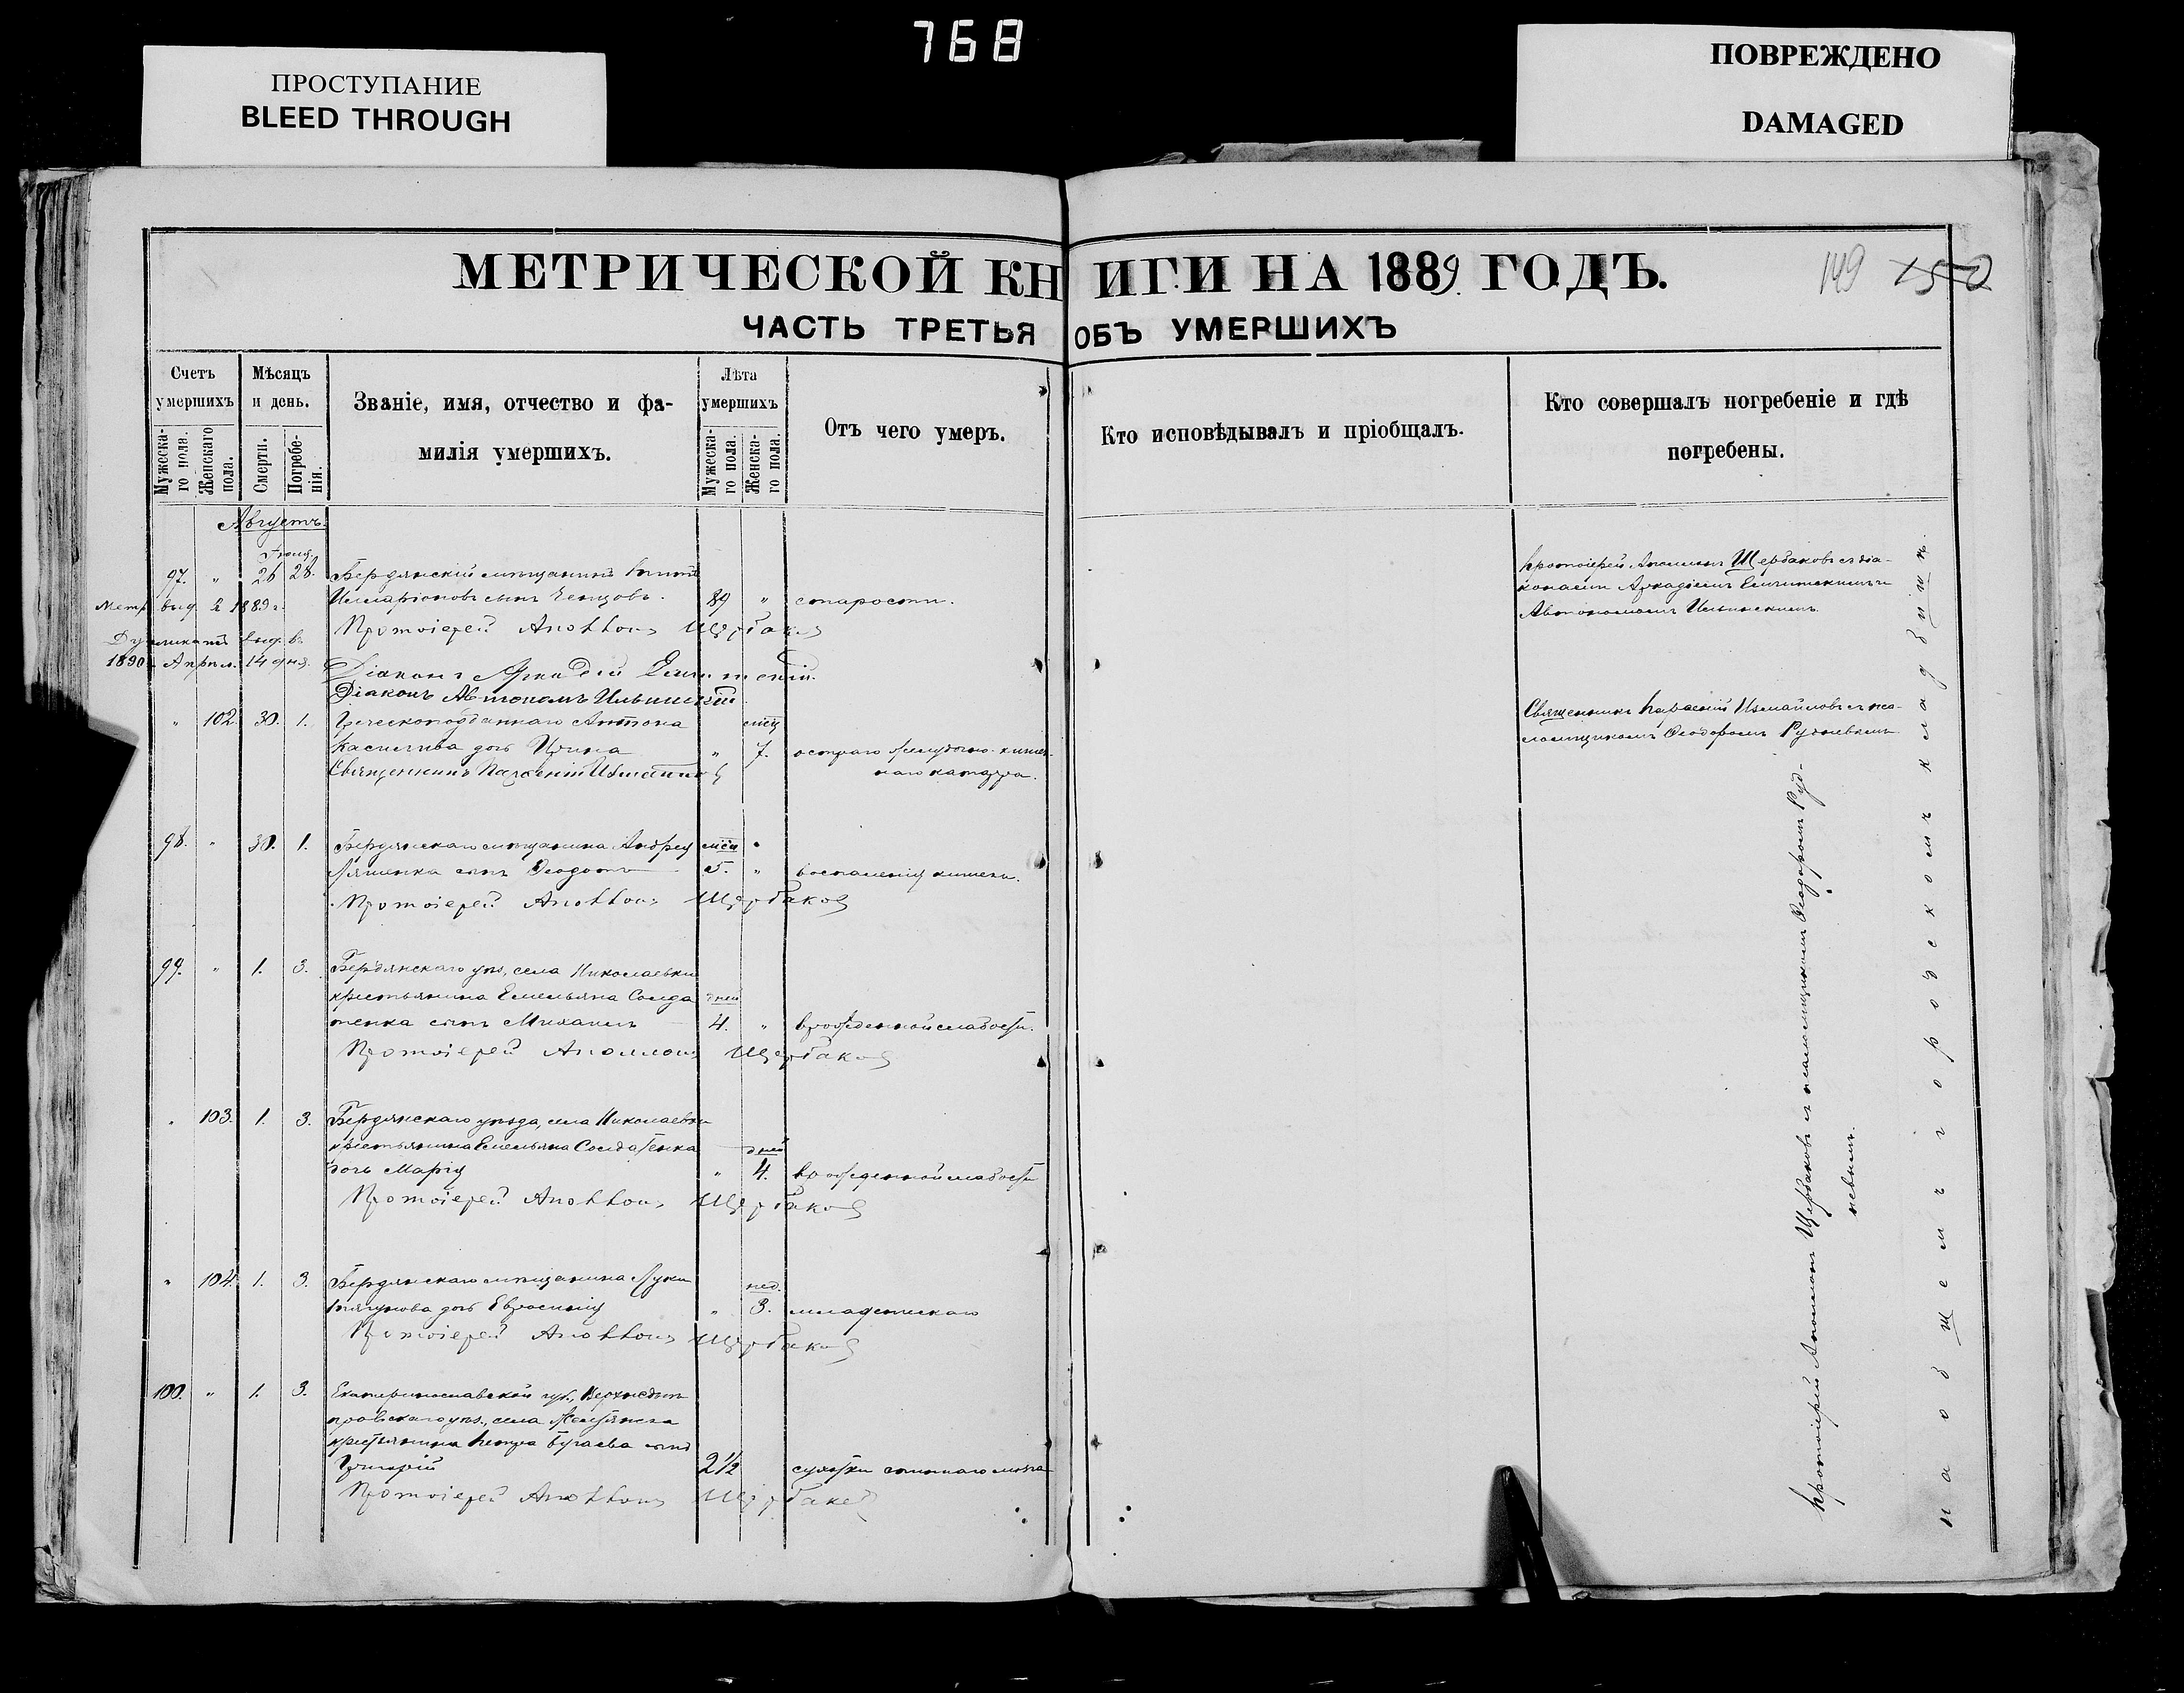 768
ПРОСТУПАНИЕ
BLEED THROUGH
ПОВРЕЖДЕНО
DAMAGED
МЕТРИЧЕСКОЙ КНИГИ НА 1889 ГОДЪ.
149 150
ЧАСТЬ ТРЕТЬЯ ОБЪ УМЕРШИХЪ
Счетъ умершихъ
Мужеска-го пола.
Женскаго пола.
Мѣсяцъ и день.
Смерти.
Погребе-нія.
Званіе, имя, отчество и фа-
милія умершихъ.
Лѣта умершихъ
Мужеска-го пола.
Женска-го пола.
Отъ чего умеръ.
Кто исповѣдывалъ и пріобщалъ.
Кто совершалъ погребеніе и гдѣ
погребены.
Августъ.
Іюля.
97. " 26 28. Бердянскій мѣщанинъ
Илларіоновъ сынъ 89 " старости.
Метр. выд. в 1889 г.
Протоіерей Аполлонъ Щербаковъ
Дубликатъ выд. въ
1890 Апрѣл. 14 дня.
Діаконъ Аркадій
Діаконъ Автономъ Ильинскій
Протоіерей Аполлонъ Щербаковъ съ діа-
конами Аркадіемъ и
Автономомъ Ильинскимъ
" 102. 30. 1. Греческоподданнаго Антона
дочь Ирина " мѣц 7. остраго желудочно-кишеч-
наго катарра.
Священникъ Парѳеній Измайловъ
Священникъ Парѳеній Измайловъ съ пса-
ломщикомъ Ѳеодоромъ Рудневымъ
98. " 30. 1. Бердянскаго мѣщанина Андрея мѣц "
Ляшенка сынъ Ѳеодотъ 5. " воспаленія кишекъ.
Протоіерей Аполлонъ Щербаковъ
99. " 1. 3. Бердянскаго уѣз., села Николаевки
крестьянина Емельяна Солда дней
тенка сынъ Михаилъ 4. " врожденной слабости.
Протоіерей Аполлонъ Щербаковъ
" 103. 1. 3. Бердянскаго уѣзда, села Николаевки
крестьянина Емельяна Солдатенка дней
дочь Марія " 4. врожденной слабости
Протоіерей Аполлонъ Щербаковъ
" 104. 1. 3. Бердянскаго мѣщанина Луки нед.
дочь Евфросинія " 3. младенческаго
Протоіерей Аполлонъ Щербаковъ
100. " 1. 3. Екатеринославской губ., Верхнеднѣ
провскаго уѣз., села
крестьянина Петра Бугаева сынъ
Григорій 2½ сухотки спиннаго мозга
Протоіерей Аполлонъ Щербаковъ
Протоіерей Аполлонъ Щербаковъ съ псаломщикомъ Ѳеодоромъ Руд-
невымъ.
на общемъ городскомъ кладбищѣ.